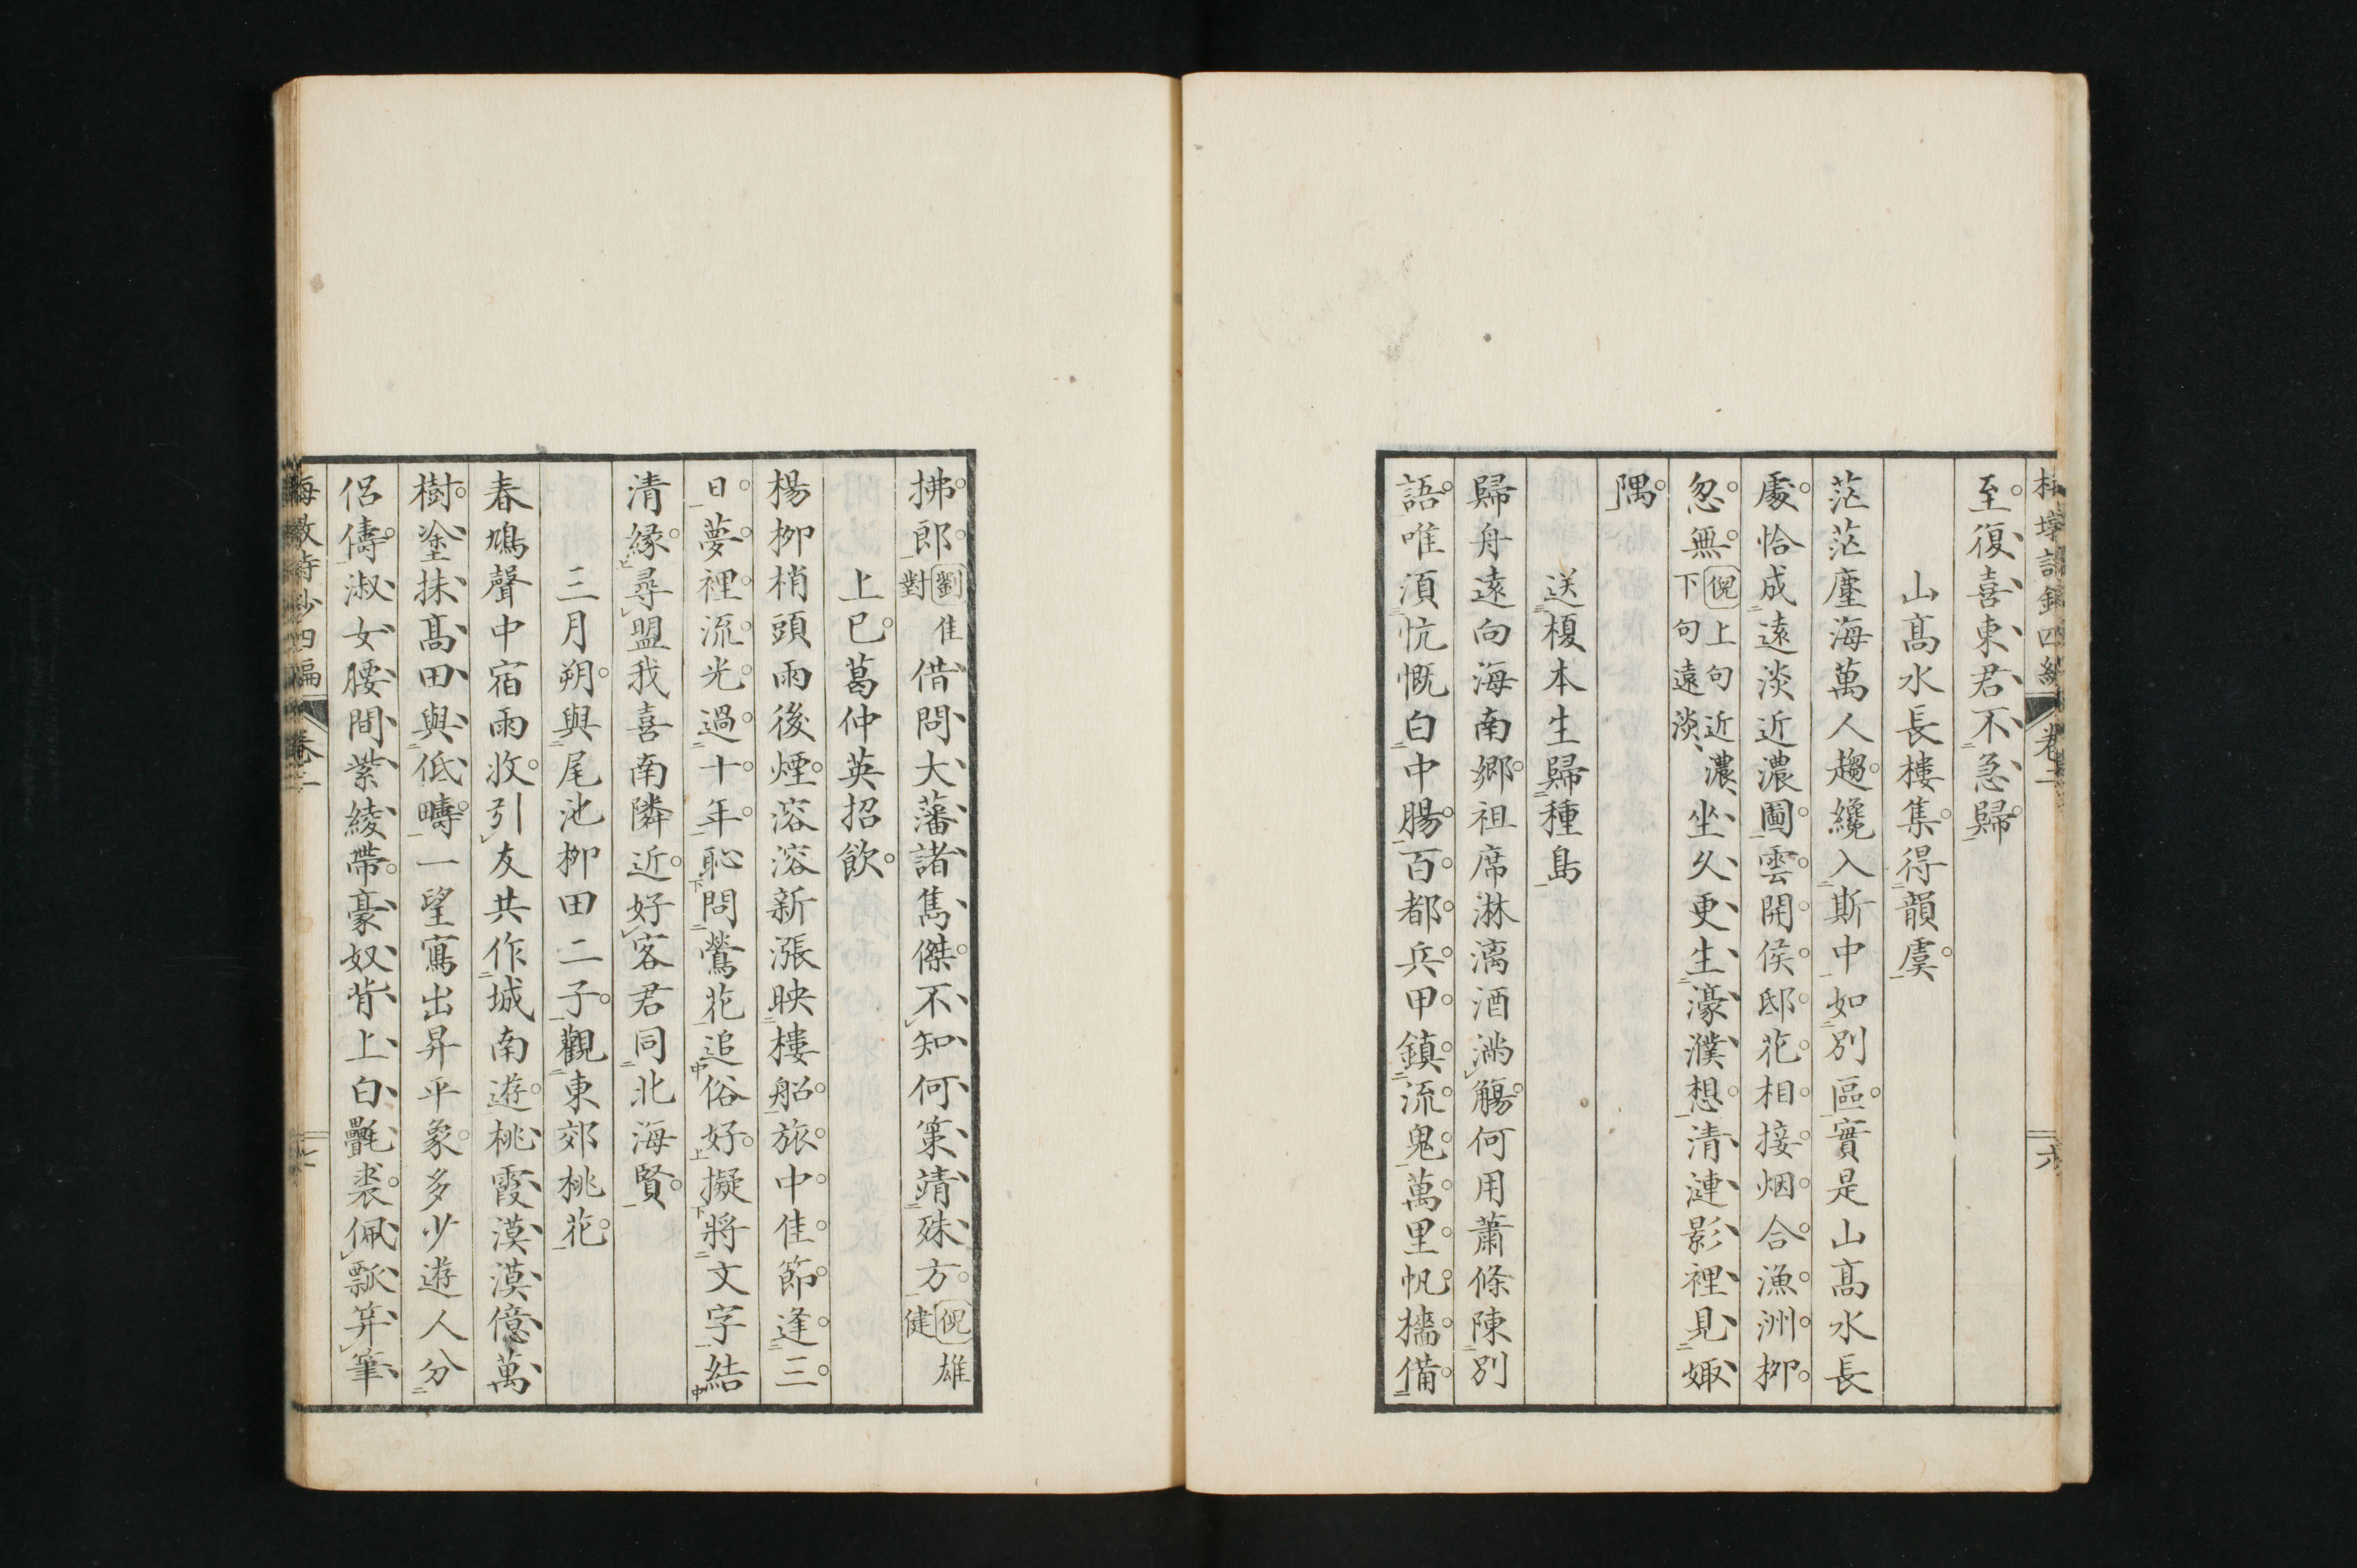 至復喜東君不急歸
山高水長樓集得韻虞
茫茫塵海萬人趨纔入斯中如別區實是山高水長
處恰成遠淡近濃圖雲開侯邸花相接烟合漁洲柳
忽無倪上句近濃下句遠淡坐久更生濠濮想清漣影裡見娵
隅
送榎本生歸種島
歸舟遠向海南鄉祖席淋漓酒滿觴何用蕭條陳別
語唯須忼慨白中腸百都兵甲鎮流鬼萬里帆檣備
拂郎劉隹對借問大藩諸雋傑不知何策靖殊方倪雄健
上巳葛仲英招飲
楊柳梢頭雨後煙溶溶新漲映樓船旅中佳節逢三
日夢裡流光過十年恥問鶯花追俗好擬將文字結
清緣尋盟我喜南隣近好客君同北海賢
三月朔與尾池柳田二子觀東郊桃花
春鳩聲中宿雨收引友共作城南遊桃霞漠漠億萬
樹塗抹高田與低疇一望寫出昇平象多少遊人分
侶儔淑女腰間紫綾帶豪奴背上白氎裘佩瓢筓筆
梅墩詩鈔四編 卷二